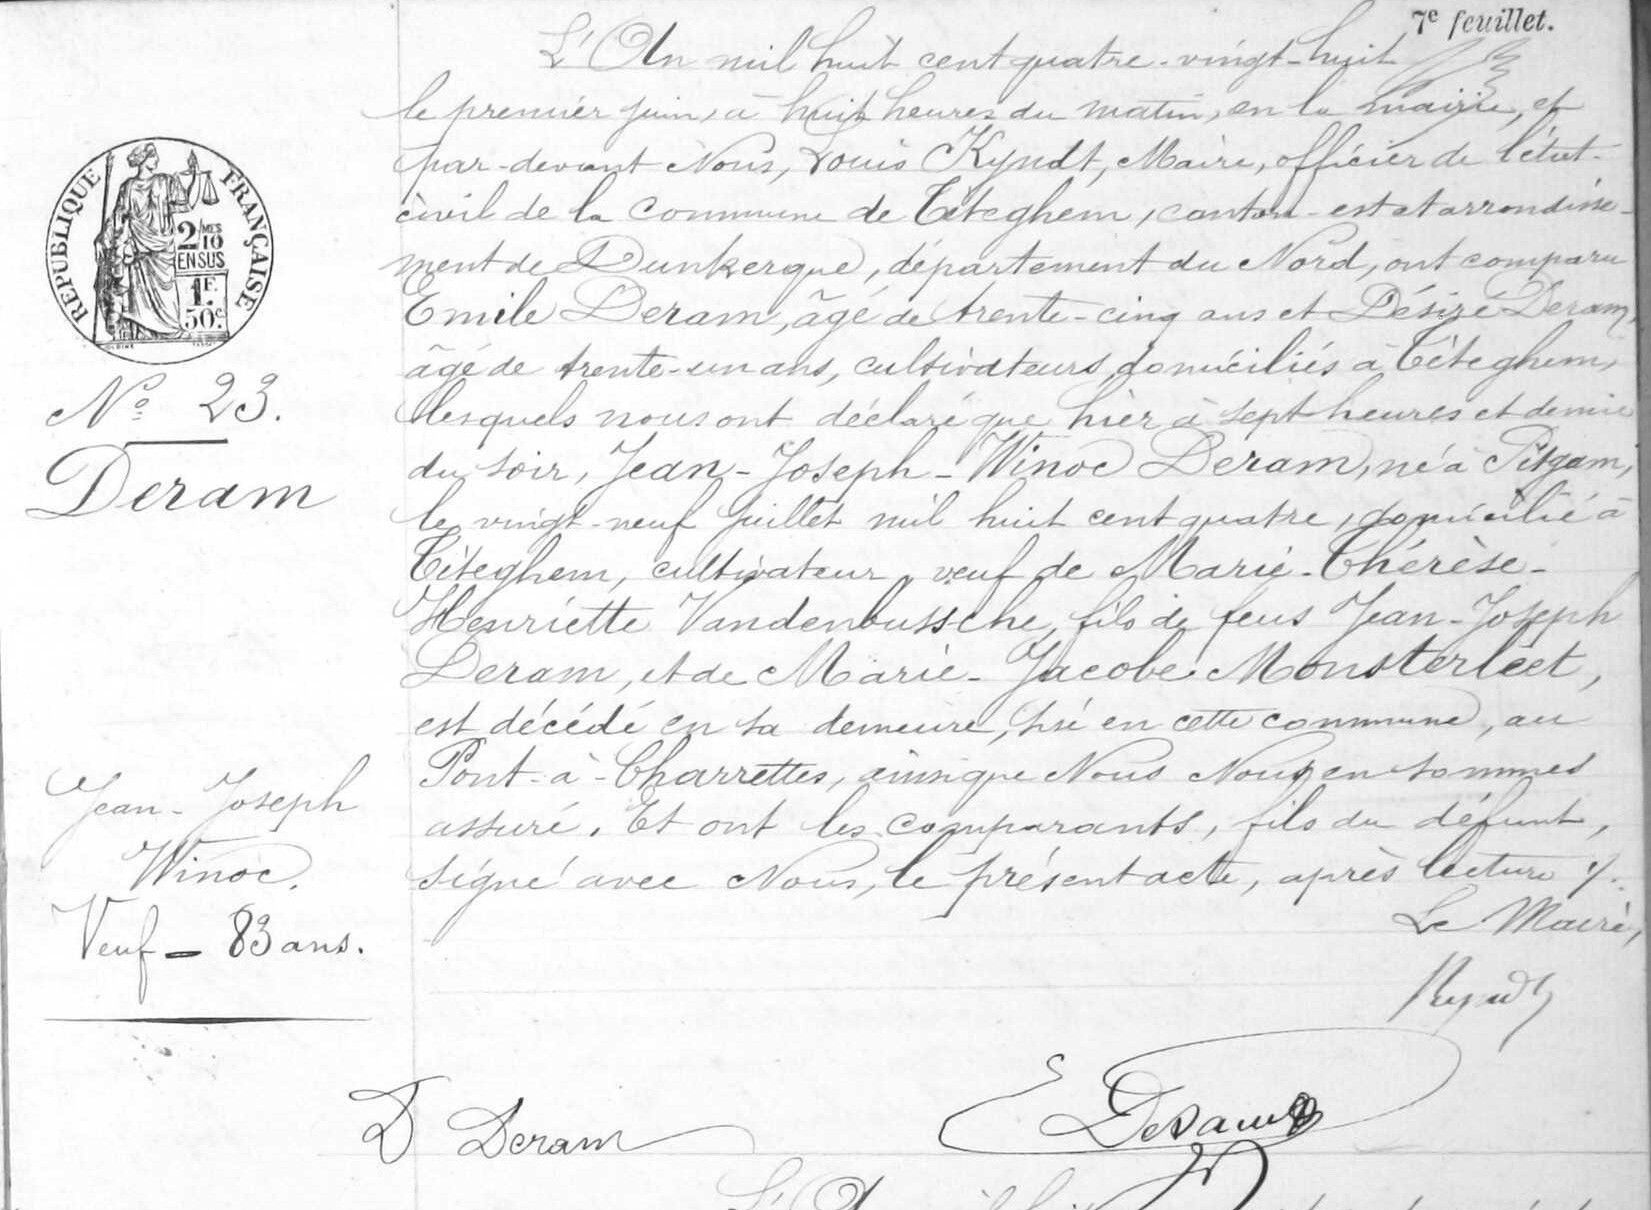 7e feuillet.
L'An mil huit cent quatre-vingt-huit
le premier juin, à huit heures du matin, en la mairie, et
par-devant Nous, Louis Kyndt, Maire, officier de l'état-
civil de la commune de Téteghem, canton-est et arrondisse-
ment de Dunkerque, département du Nord, ont comparu
Emile Deram, âgé de trente-cinq ans et Désiré Deram,
âgé de trente-un ans, cultivateurs, domiciliés à Téteghem,
lesquels nous ont déclaré que hier à sept heures et demie
du soir, Jean-Joseph-Winoc Deram, né à Pitgam,
le vingt-neuf juillet mil huit cent quatre, domicilié à
Téteghem, cultivateur, veuf de Marie-Thérèse-
Henriette Vandenbussche, fils de feus Jean-Joseph
Deram, et de Marie-Jacobe Monsterleet,
est décédé en sa demeure, sise en cette commune, au
Pont-à-Charrettes, ainsi que Nous Nous en sommes
assuré. Et ont les comparants, fils du défunt,
signé avec Nous, le présent acte, après lecture ./.
Le Maire,
Kyndt
D Deram
E Deram
L'An mil huit
RÉPUBLIQUE FRANÇAISE
2/10 MES
EN SUS
1F.
50c.
No 23.
Deram
Jean-Joseph
Winoc.
Veuf - 83 ans.